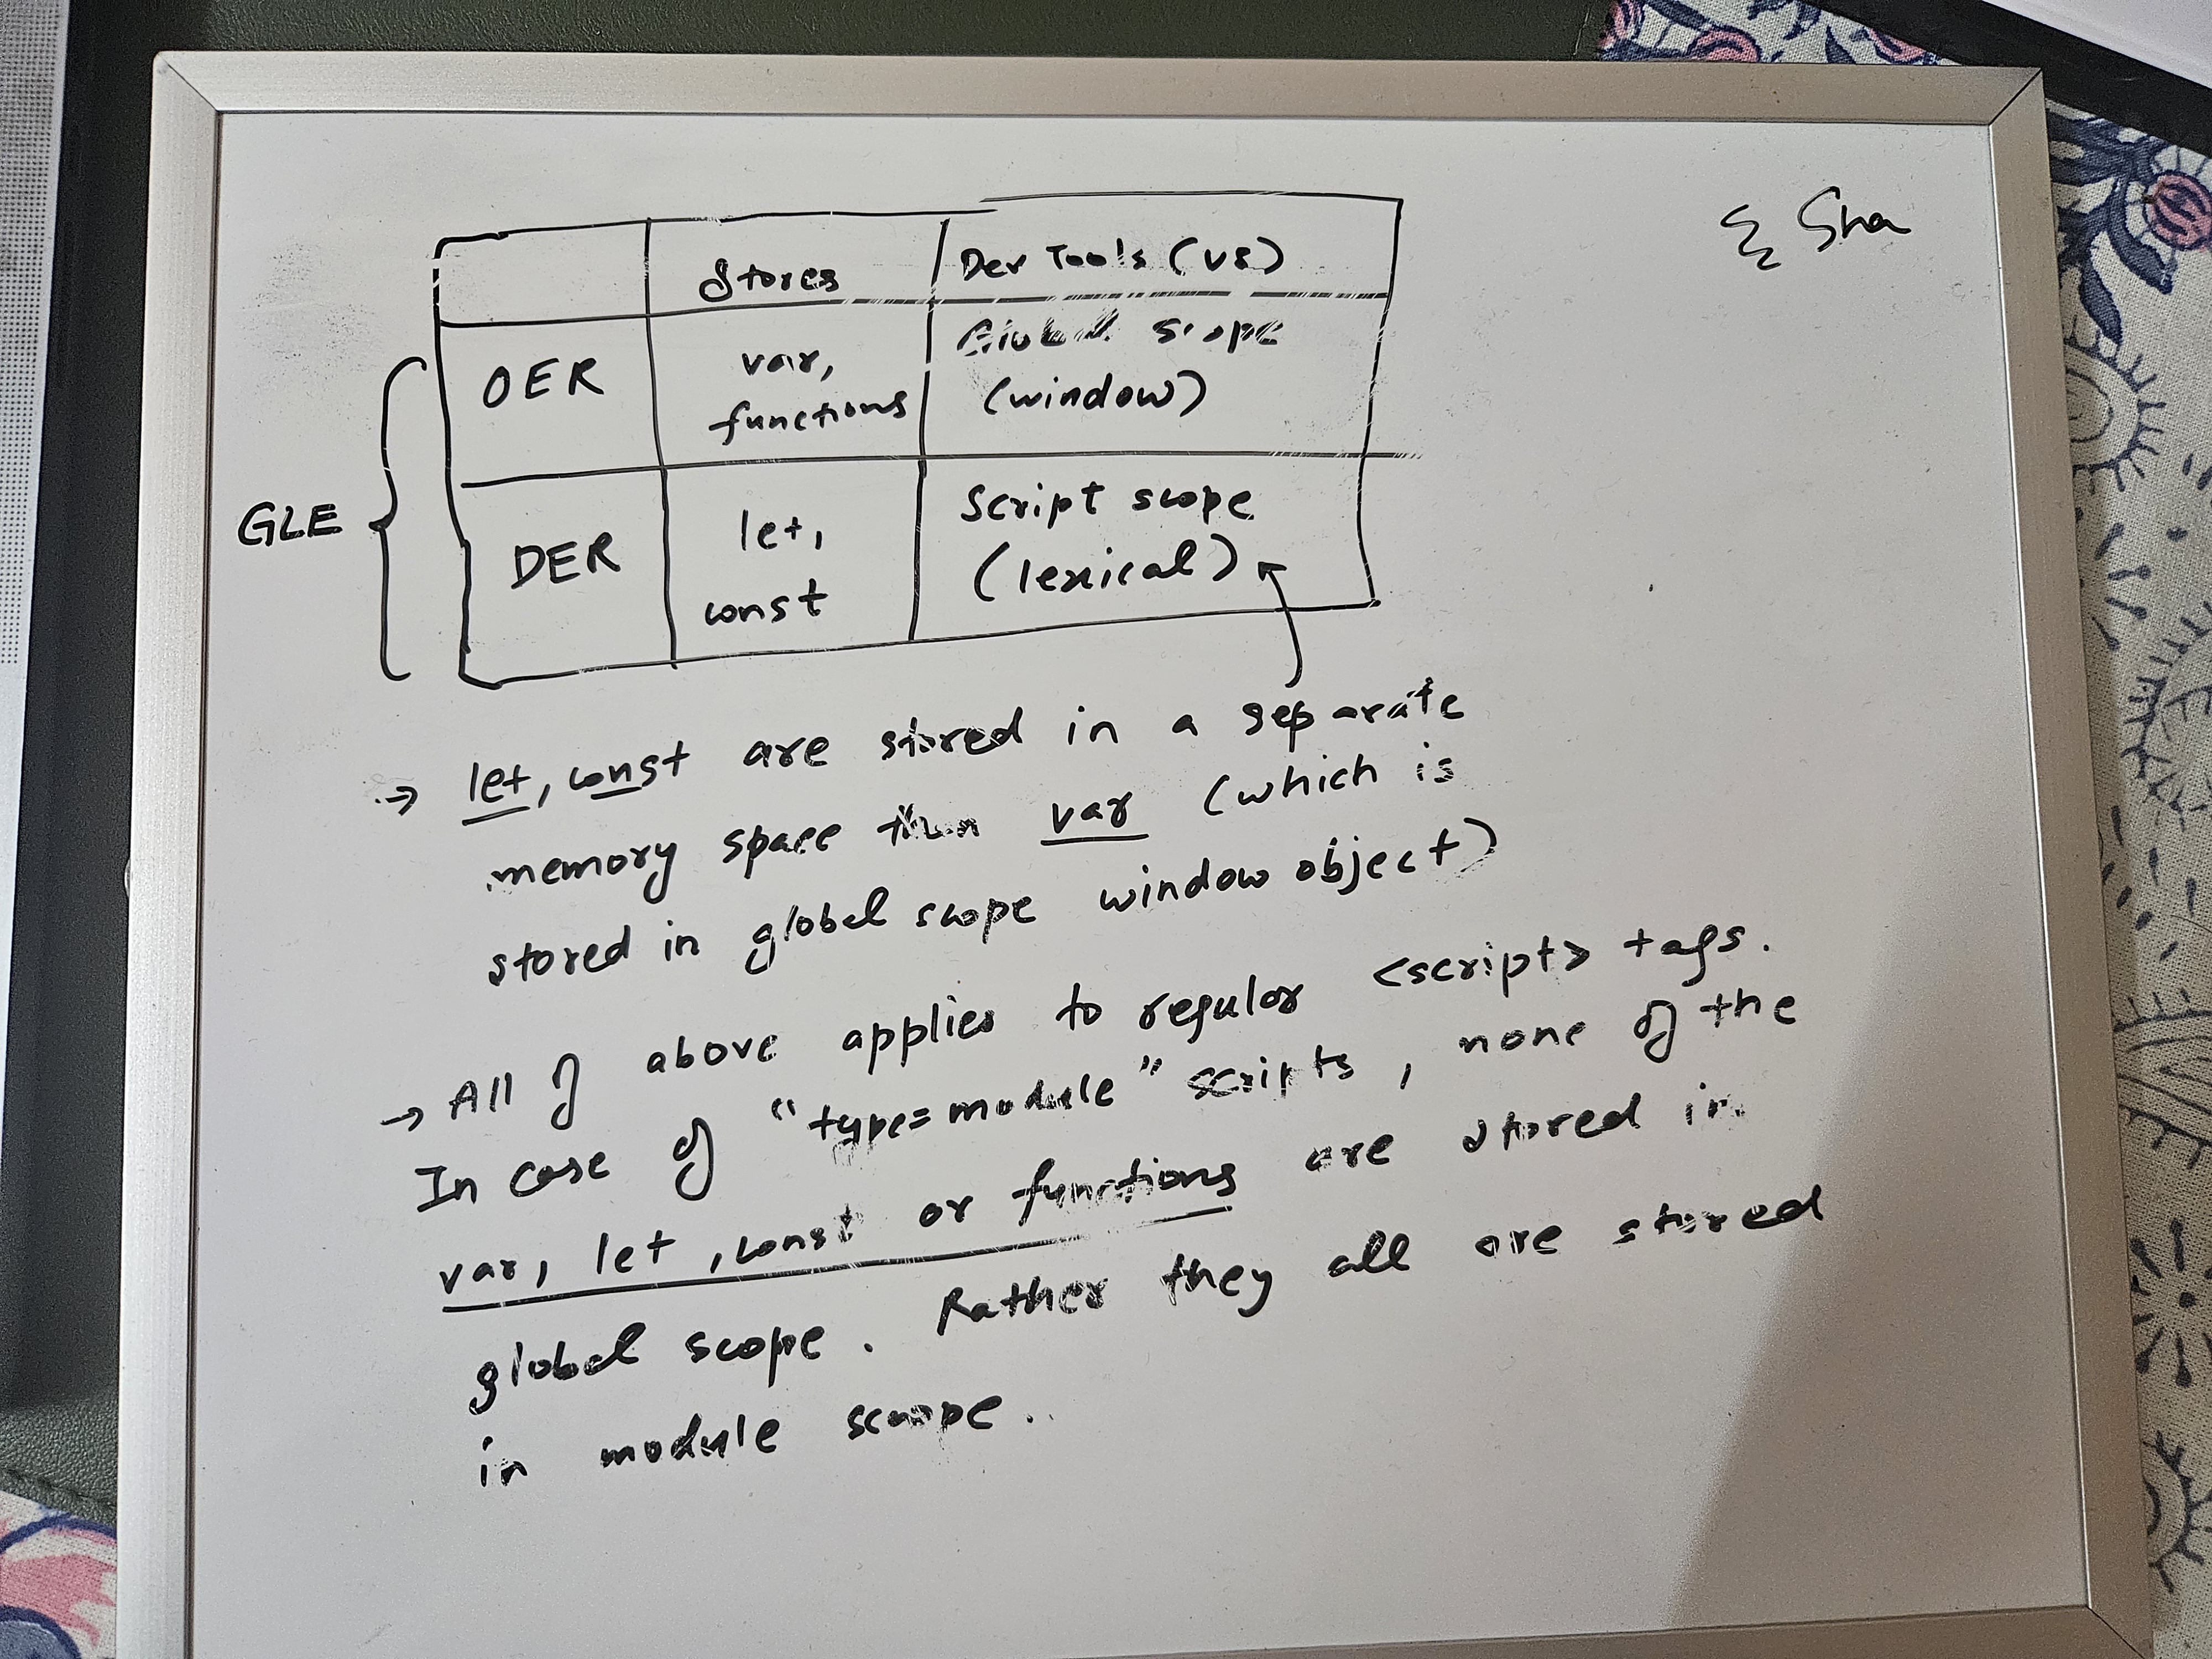 Stores Dev Tools (V8)
OER var, functions Global scope (window)
GLE
DER let, const Script scope (lexical)
→ let, const are stored in a separate
memory space than var (which is
stored in global scope window object)
→ All of above applies to regular <script> tags.
In case of "type=module" scripts, none of the
var, let, const or functions are stored in
global scope. Rather they all are stored
in module scope.